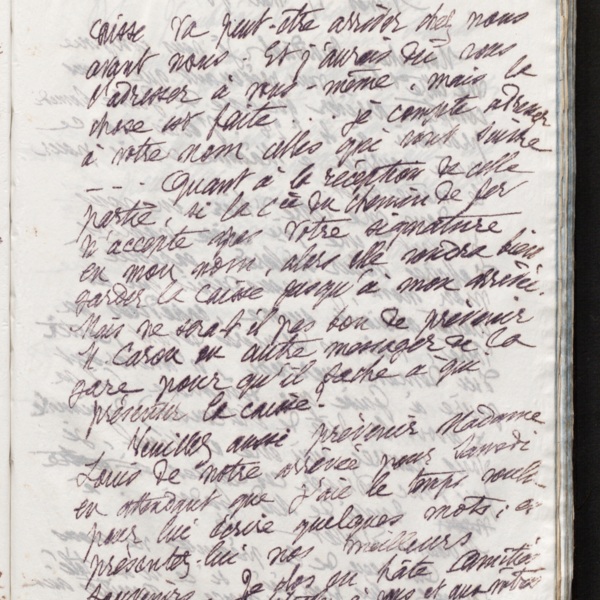 caisse va peut-être arriver chez nous
avant nous. Et j'aurais dû vous
l'adresser à vous-même, mais la
chose est faite... Je compte adresser
à votre nom celles qui vont suivre
--- . Quant à la réception de celle
partie, si la Cie du Chemin de fer
n'accepte pas votre signature
en mon nom, alors elle voudra bien
garder la caisse jusqu'à mon arrivée.
Mais ne serait-il pas bon de prévenir
M. Caron ou autre messager de la
gare pour qu'il sache à qui
présenter la caisse.
Veuillez aussi prévenir Madame
Louis de notre arrivée pour Samedi
en attendant que j'aie le temps
pour lui écrire quelques mots; et
présentez-lui nos meilleurs
souvenirs. Je clos en hâte
à vous et